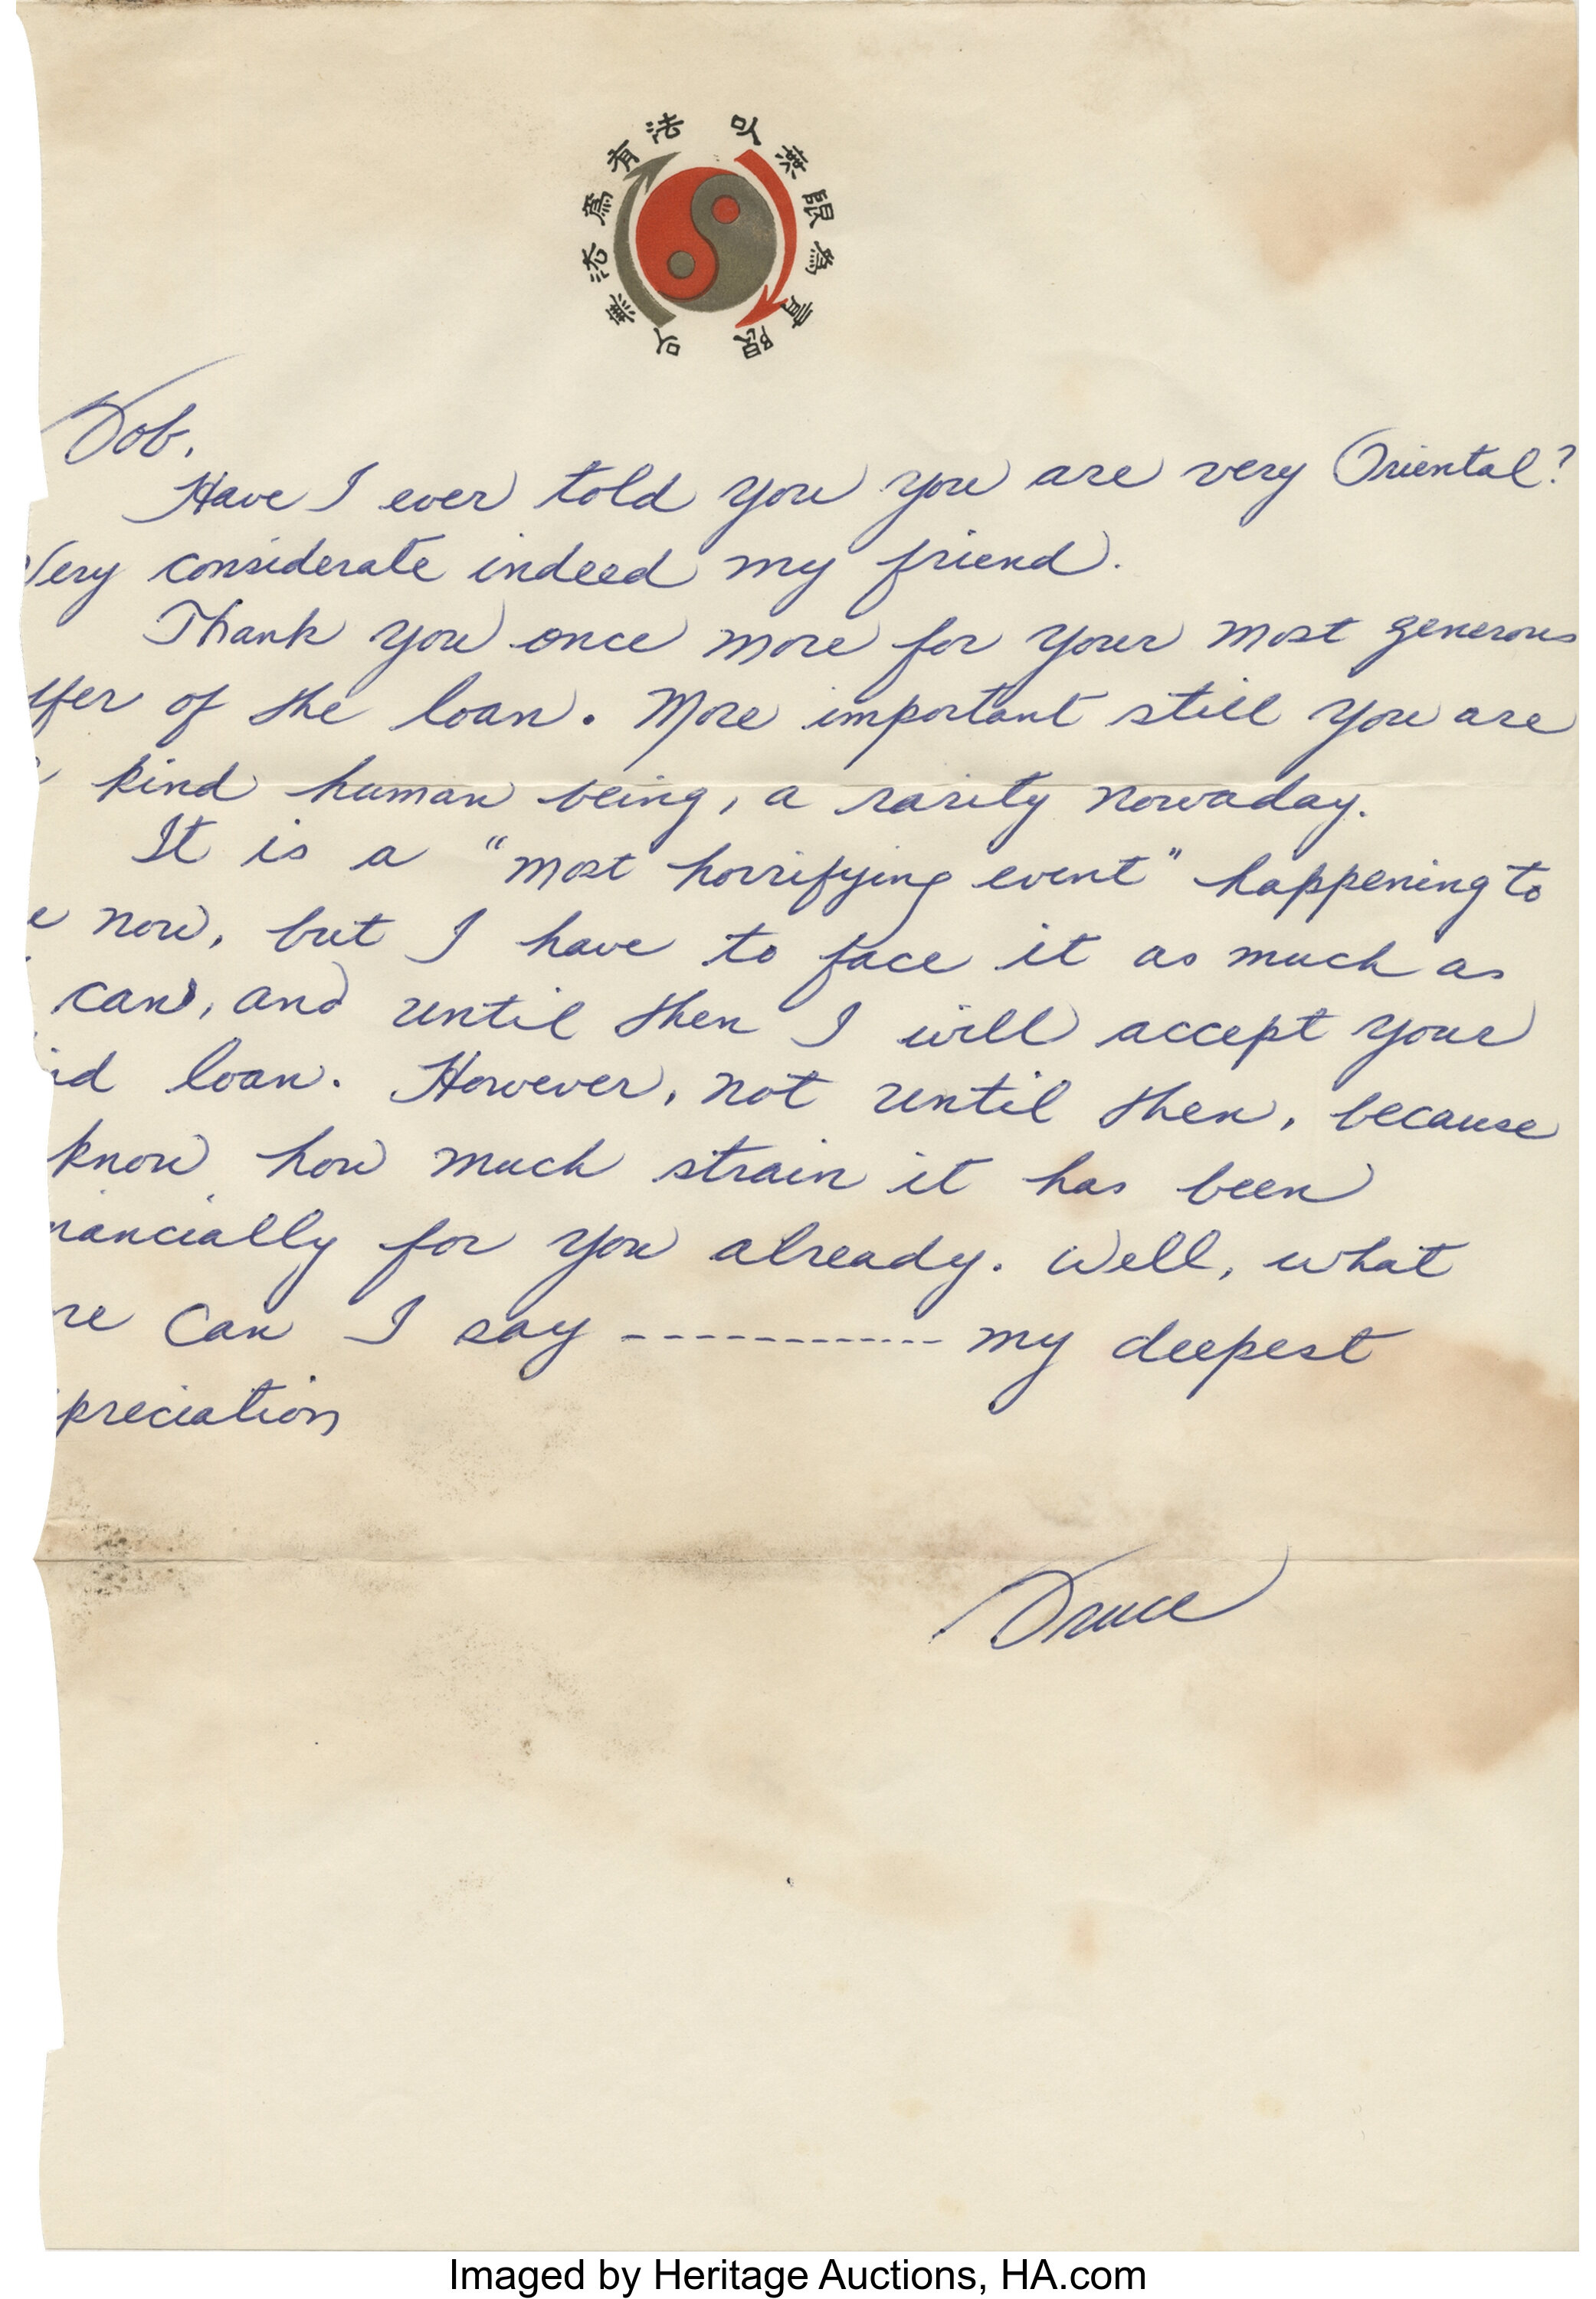 㕥無法爲有法
㕥無限爲有限
Bob,
Have I ever told you you are very Oriental?
Very considerate indeed my friend.
Thank you once more for your most generous
ffer of the loan. More important still you are
kind human being, a rarity nowaday.
It is a "most horrifying event" happening to
e now, but I have to face it as much as
can, and until then I will accept your
id loan. However, not until then, because
know how much strain it has been
nancially for you already. Well, what
re can I say ------------ my deepest
preciation
Bruce
Imaged by Heritage Auctions, HA.com